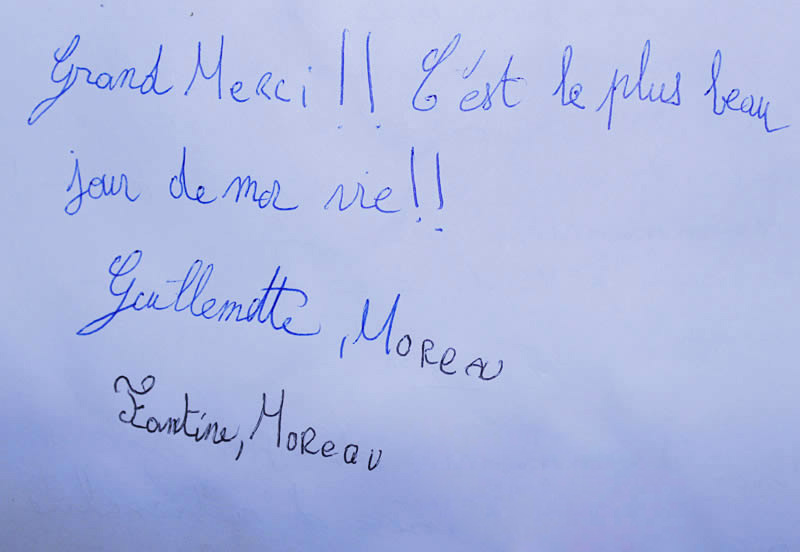 Grand Merci !! C'est le plus beau
jour de ma vie !!
Guillemette, Moreau
Fantine, Moreau